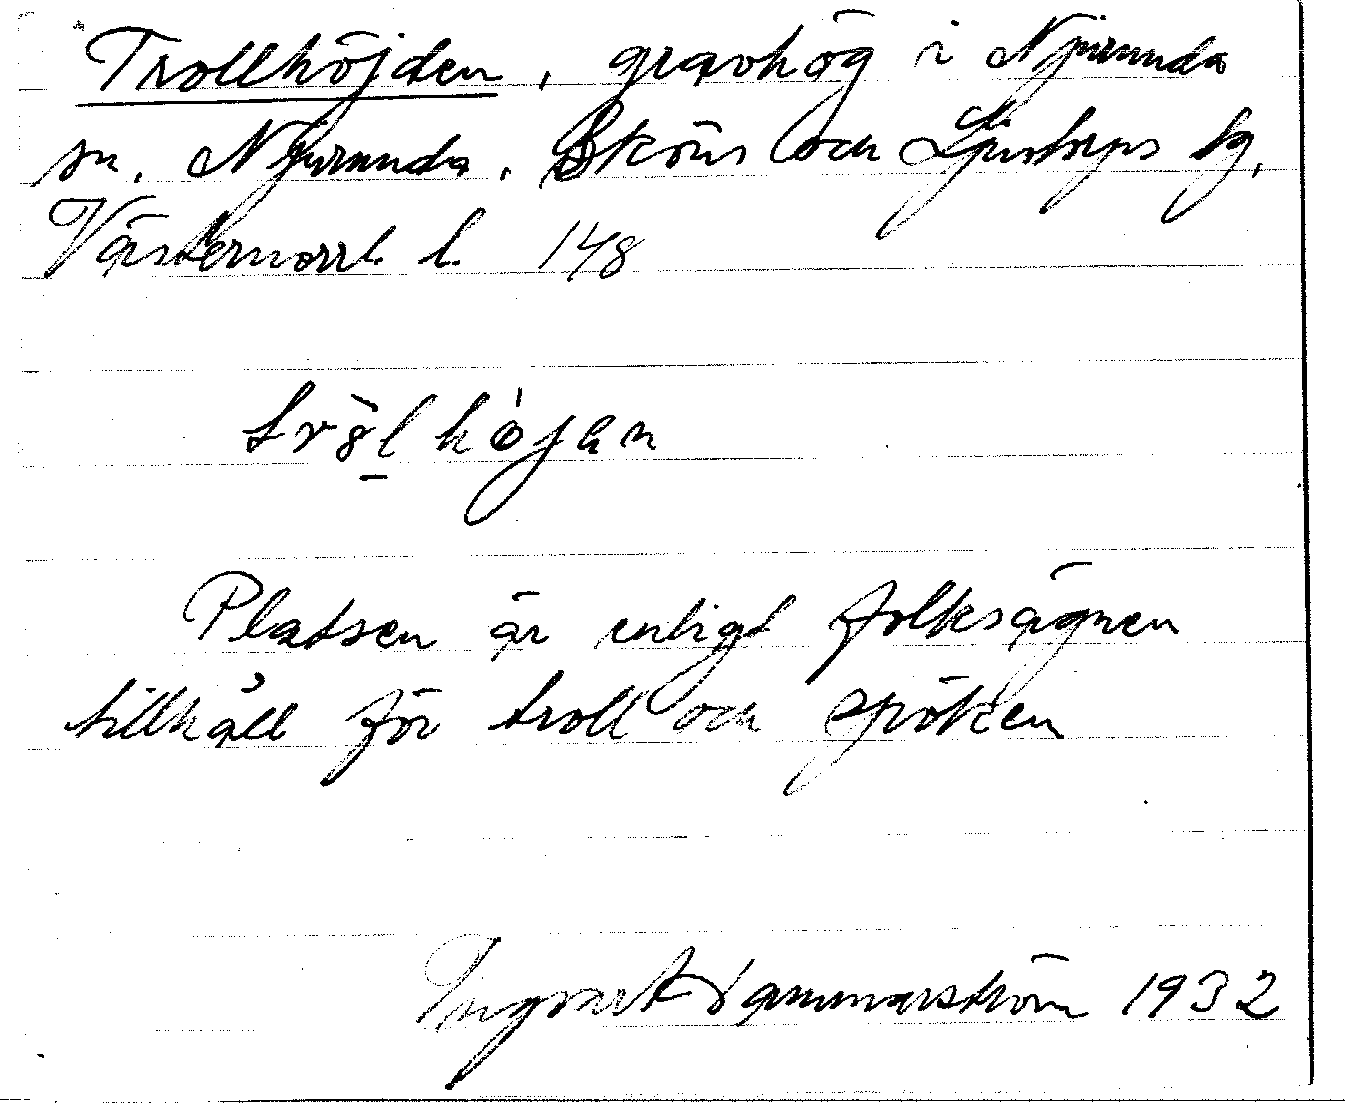 Trollhöjden, gravhög i Njurunda
sn. Njurunda, Sköns och Ljustorps tg.
Västernorrl. l. 148
Platsen är enligt folksägnen
tillhåll för troll och spöken
Ingvar Hammarström 1932